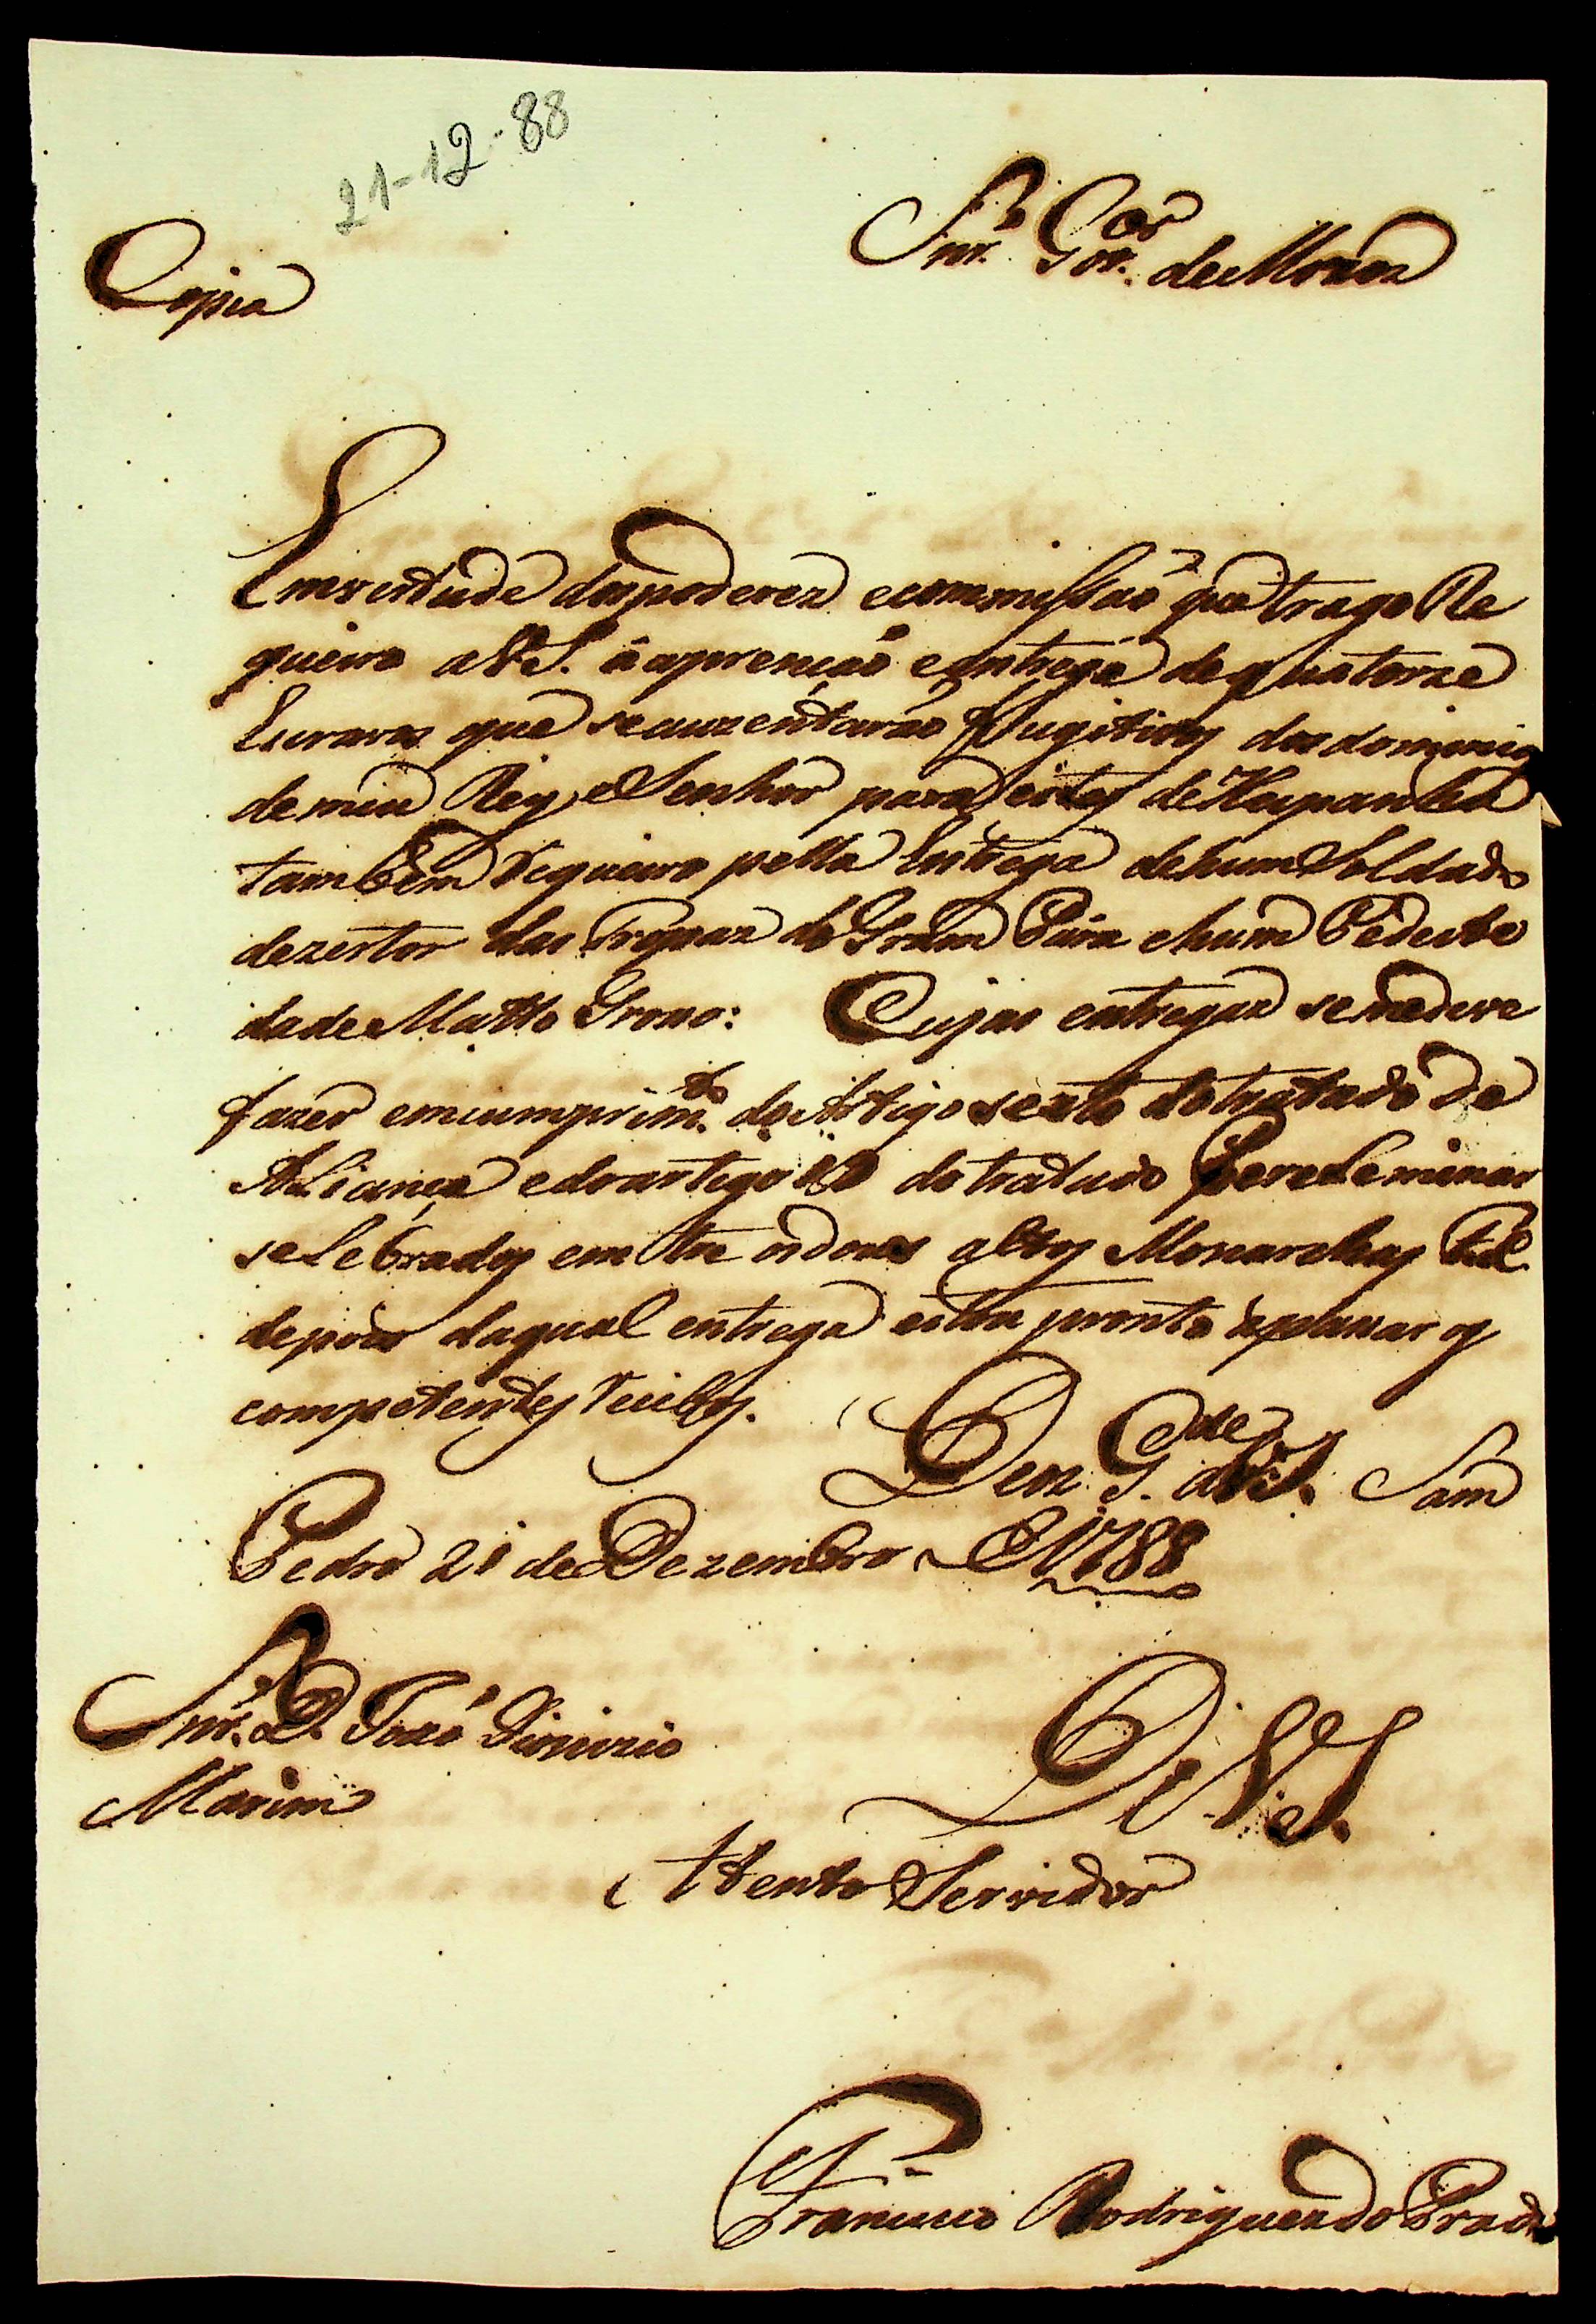 21-12-88
Copia
Snr. Gor. de Moxos
Em virtude dos poderez e commissaõ que trago Re
queiro a V.S. á aprençaõ e entrega de quatorze
Escravos que se auzentaraõ fugitivos dos dominios
de meu Rey, e Senhor para estes de Hespanha
tambem requeiro pella Entrega de hum Soldado
dezertor das Tropaz do Gram Pára e hum Pedeste
da de Matto Groso: Cujas entregaz se me deve
fazer em cumprimto. do Artigo sexto do tratado de
Aliança e do artigo 19 do tratado Pereleminar
selebrados em tre os dous altos Monarchas
depois da qual entrega estou pronto a pasar os
competentes recibos. Deos Gde. a V.S. Sam
Pedro 21 de Dezembro de 1788
Snr. D. Jozé
Marim
De V.S.
Attento Servidor
Francisco Rodriguez do Prado